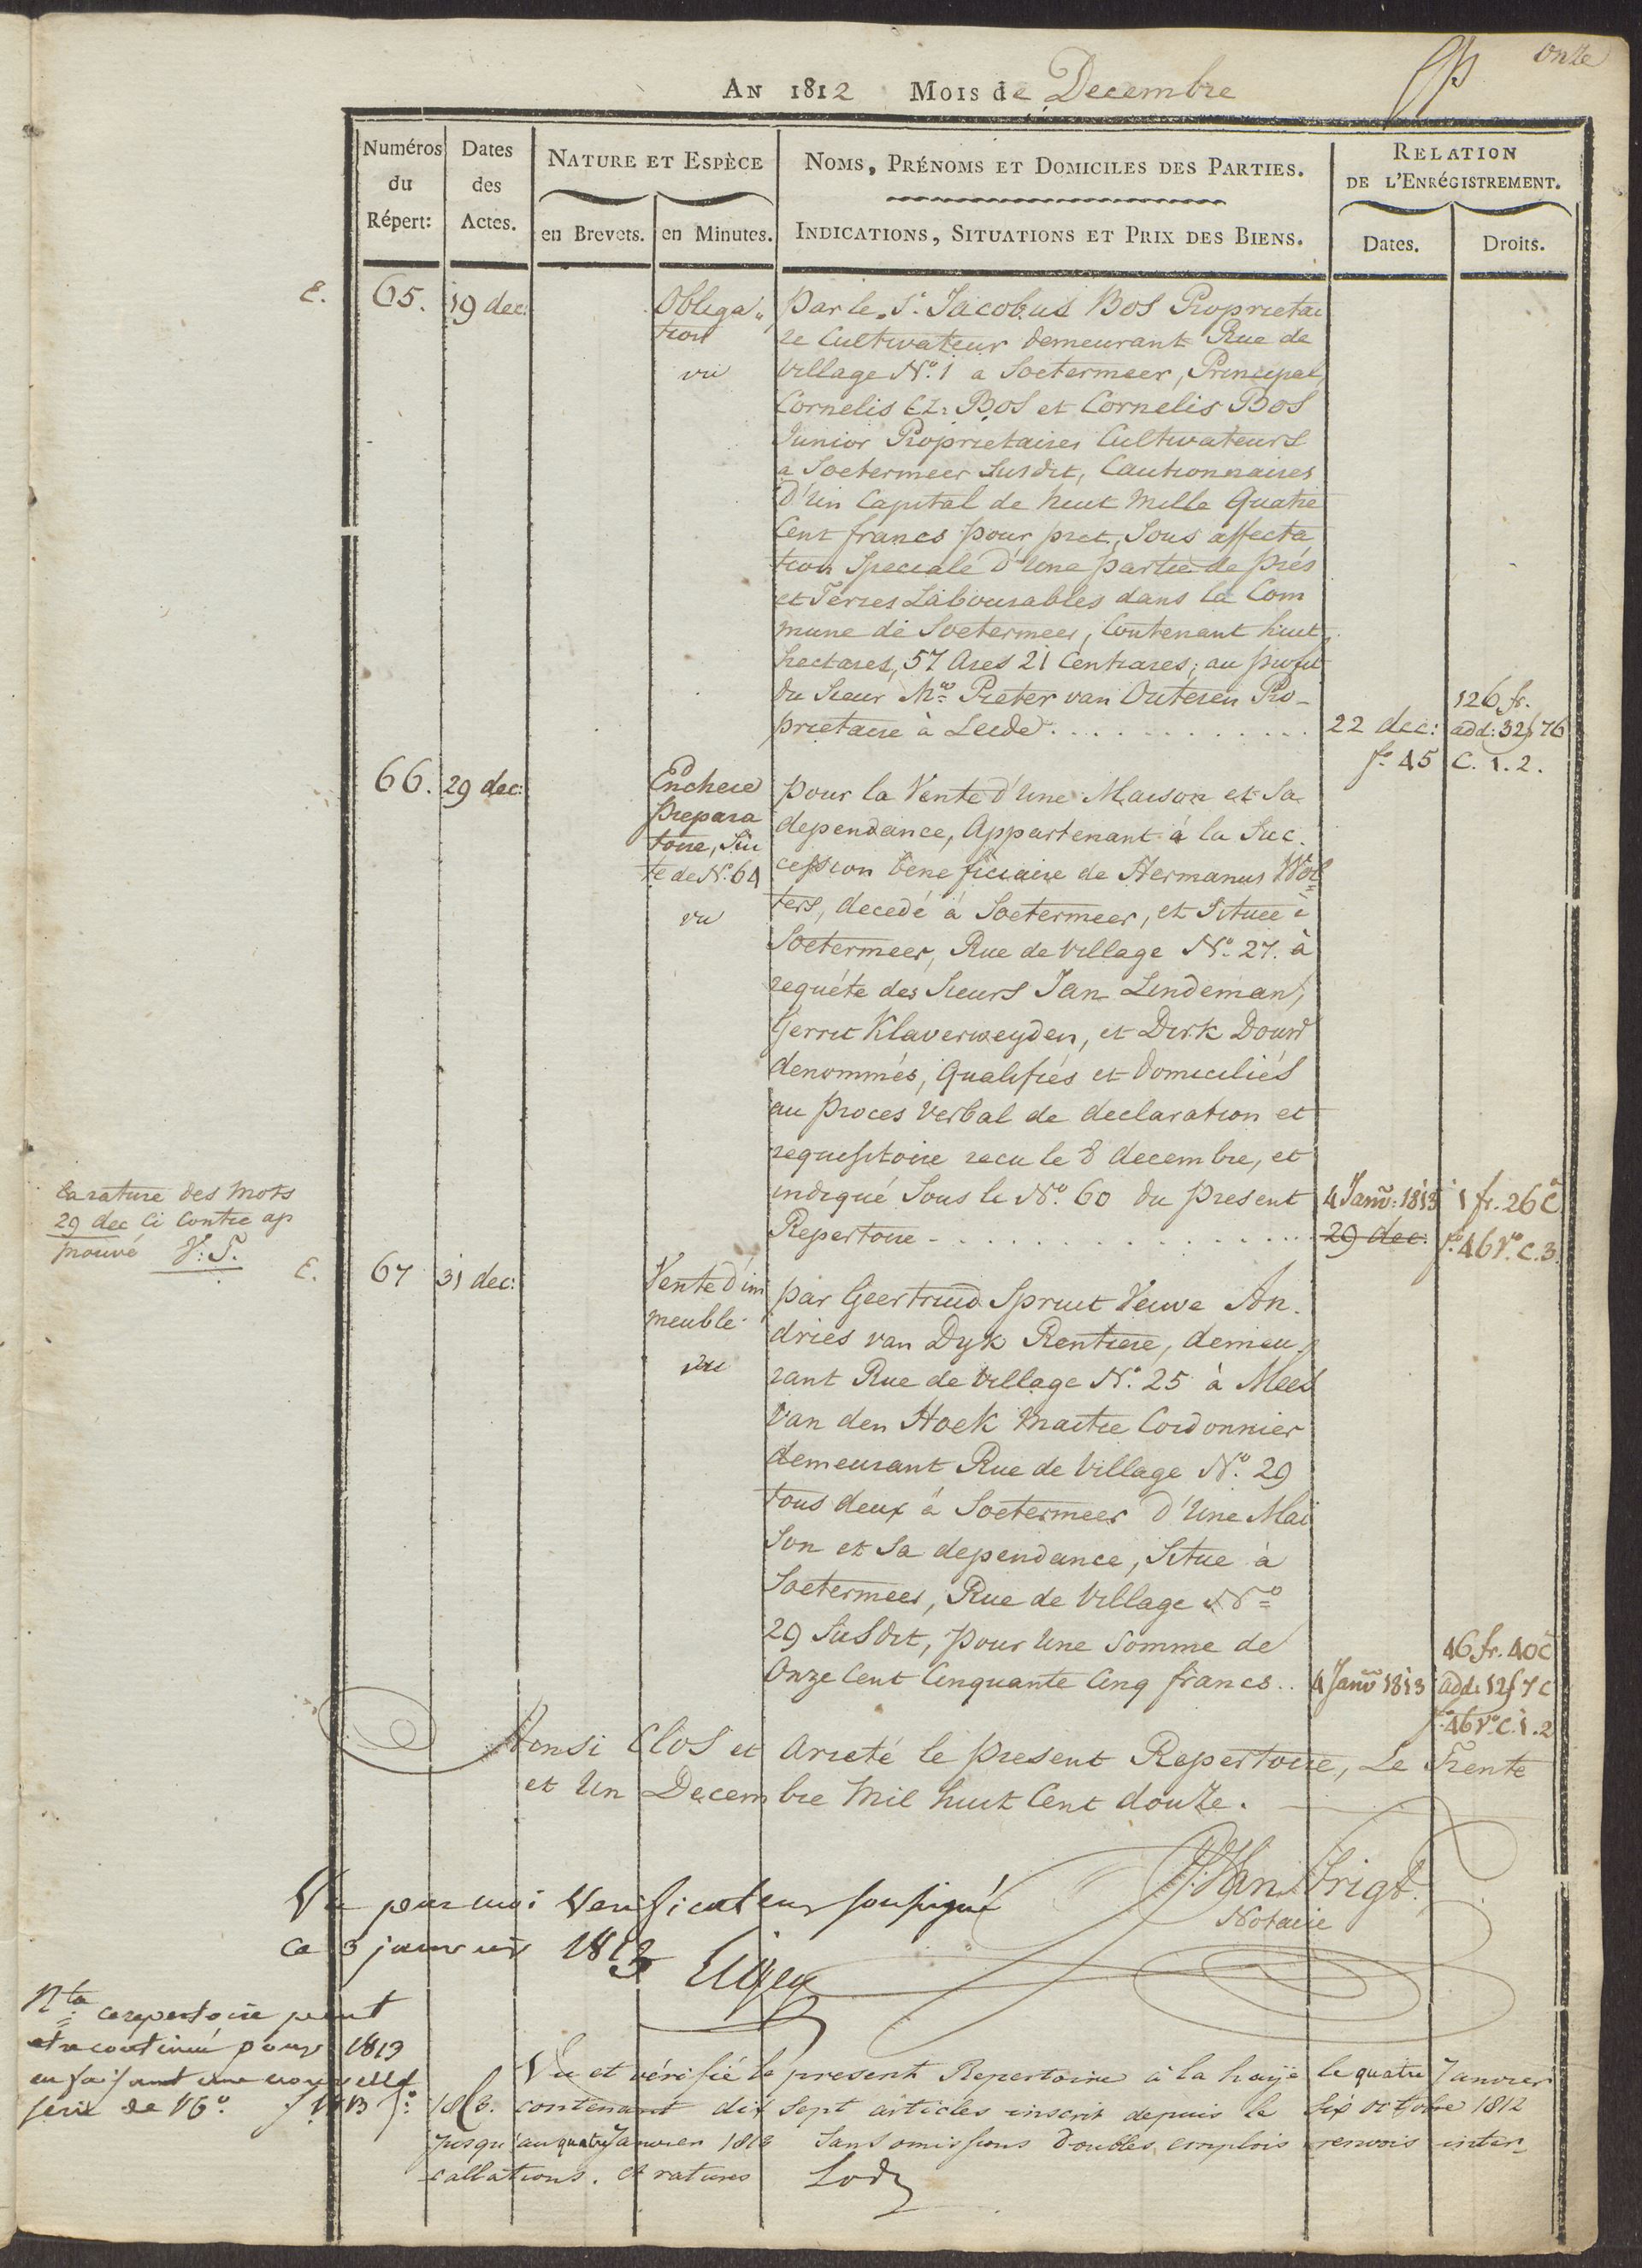 onze
AN 1812 MOIS de Decembre
Numéros du Répert:
Dates des Actes.
NATURE ET ESPÈCE
en Brevets. en Minutes.
NOMS, PRÉNOMS ET DOMICILES DES PARTIES.
INDICATIONS, SITUATIONS ET PRIX DES BIENS.
RELATION
DE L'ENRéGISTREMENT.
Dates. Droits.
E. 65. 19 dec:
Obliga„
tion
vu
Par le Sr. Jacobus Bos Proprietai
re Cultivateur demeurant Rue de
Village No. 1 a Soetermeer, Principal,
Cornelis Cz: Bos et Cornelis Bos
Junior Proprietaires Cultivateurs
a Soetermeer Susdit, Cautionnaires
D'Un Capital de huit Mille Quatre
Cent francs pour pret, Sous affecta
tion Speciale d'Une partie de Prés
et Terres Labourables dans la Com
mune de Soetermeer, Contenant huit
hectares, 57 Ares 21 Centiares; au profit
du Sieur Mr. Pieter van Outeren Pro-
prietaire à Leide
22 dec:
fo 45
126 fr.
add: 32f 76
C. 1. 2.
66. 29 dec:
Enchere
Prepara
toire, Sui
te de N. 64
vu
pour la Vente d'Une Maison et Sa
dependance, Appartenant à la Suc.
cession beneficiaire de Hermanus Wol=
ters, decedé à Soetermeer, et Situee à
Soetermeer, Rue de Village No. 27. à
requéte des Sieurs Jan Lindeman,
Gerrit Klaverweyden, et Dirk Dourd
denommés, Qualifiés et Domiciliés
au proces Verbal de declaration et
requisitoire recu le 8 decembre, et
indiqué Sous le No. 60 du present
Repertoire
4 Janv: 1813
29 dec:
1 fr. 26 C
fo 46 Vo. C. 3.
La rature des Mots
29 dec Ci Contre ap
prouvé V: T.
E. 67 31 dec:
Vente d'im
meuble
vu
par Geertruid Spruit Veuve An.
dries van Dyk Rentiere, demeu
rant Rue de Village No. 25 à Mees
Van den Hoek Maitre Cordonnier
demeurant Rue de Village No. 29
tous deux à Soetermeer d'Une Mai
Son et Sa dependance, Situe à
Soetermeer, Rue de Village No
29 Susdit, pour Une Somme de
Onze Cent Cinquante Cinq francs..
4 Janv 1813
46 fr. 40 c
add: 12f 7 c
fo 46 Vo. C. 1. 2
Ainsi Clos et Arreté le present Repertoire, Le Trente
et Un Decembre Mil huit Cent douze.
Van Trigt.
Notaire
Vu par moi Verificateur soussigné
Ce 3 janvier 1813
Nta ce repertoire peut
etre continué pour 1813
en faisant une nouvelle
serie de No.
Vu et vérifié le present Repertoire à la haye le quatre Janvier
1813. contenant dix sept articles inscrit depuis le Six octobre 1812
jusqu'au quatre Janvier 1813 Sans omissions Doubles emplois renvois inter
callations. et ratures